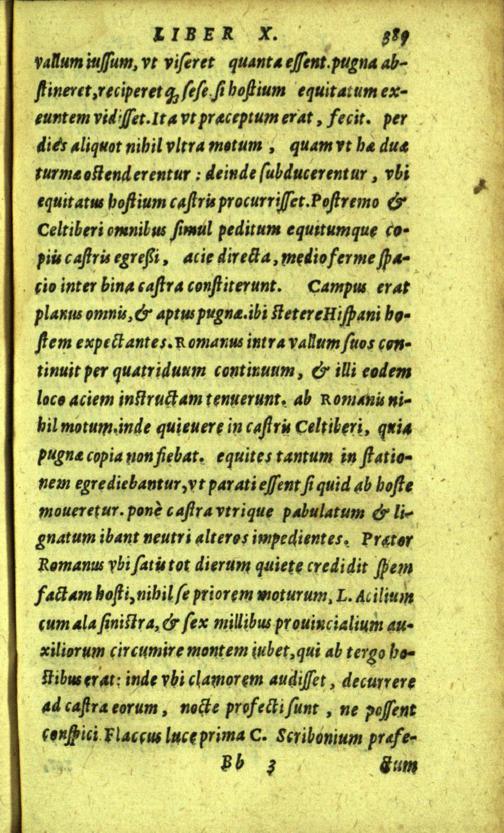 LIBER X. 389
vallum iussum, vt viseret quanta essent. pugna ab-
stineret, reciperetq; sese. si hostium equitatum ex-
euntem vidisset. Ita vt præceptum erat, fecit. per
dies aliquot nihil vltra motum, quam vt hæ duæ
turmæ ostenderentur: deinde subducerentur, vbi
equitatus hostium castris procurrisset. Postremo &
Celtiberi omnibus simul peditum equitumque co-
piis castris egreßi, acie directa, medio ferme spa-
cio inter bina castra constiterunt. Campus erat
planus omnis, & aptus pugnæ. ibi stetere Hispani ho-
stem expectantes. Romanus intra vallum suos con-
tinuit per quatriduum continuum, & illi eodem
loco aciem instructam tenuerunt. ab Romanis ni-
hil motum. inde quieuere in castris Celtiberi, quia
pugnæ copia non fiebat. equites tantum in statio-
nem egrediebantur, vt parati essent si quid ab hoste
moueretur. ponè castra vtrique pabulatum & li-
gnatum ibant neutri alteros impedientes. Prætor
Romanus vbi satis tot dierum quiete credidit spem
factam hosti, nihil se priorem moturum, L. Acilium
cum ala sinistra, & sex millibus prouincialium au-
xiliorum circumire montem iubet, qui ab tergo ho-
stibus erat: inde vbi clamorem audisset, decurrere
ad castra eorum, nocte profecti sunt, ne possent
conspici. Flaccus luce prima C. Scribonium præfe-
Bb 3 ctum